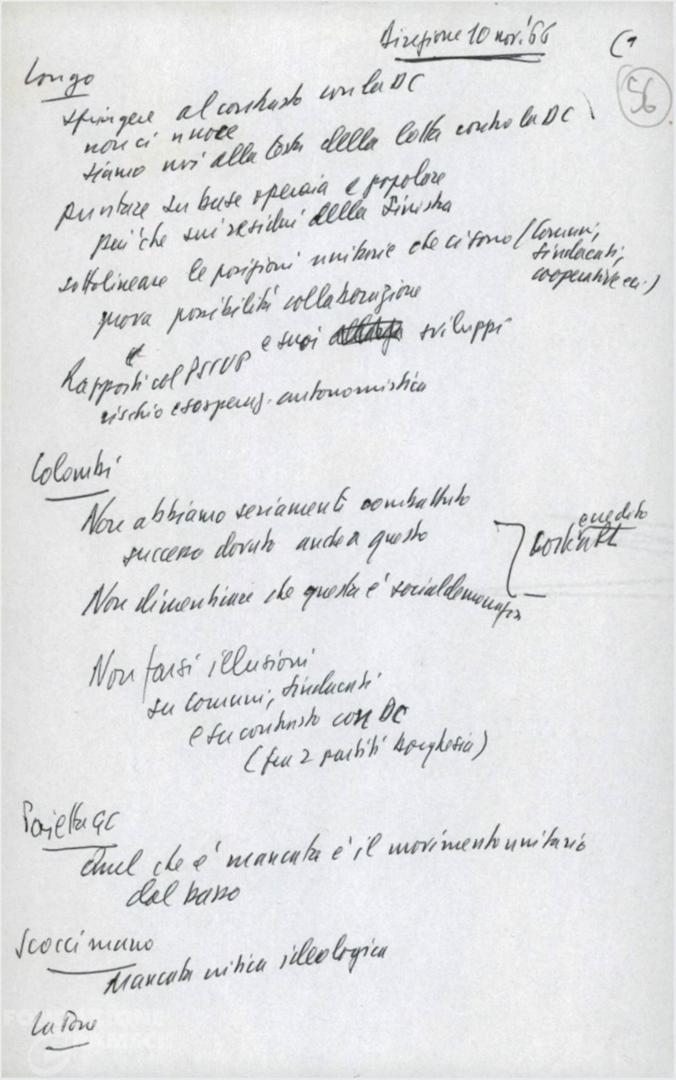 Direzione 10 nov. '66
56
Longo
spingere al contrasto con la DC
non ci nuoce
siamo noi alla testa della lotta contro la DC
puntare su base operaia e popolare
più che sui residui della sinistra
sottolineare le posizioni unitarie che ci sono (Comuni,
sindacati,
cooperative ecc.)
nuova possibilità collaborazione
Rapporti col PSIUP e suoi sviluppi
rischio esasperaz. autonomistica
Colombi
Non abbiamo seriamente combattuto
successo dovuto anche a questo
Non dimenticare che questa è socialdemocrazia
Non farsi illusioni
su comuni, sindacati
e su contrasto con DC
(fra 2 partiti borghesia)
Pajetta GC
Quel che è mancato è il movimento unitario
dal basso
Scoccimarro
Mancata critica ideologica
La Torre